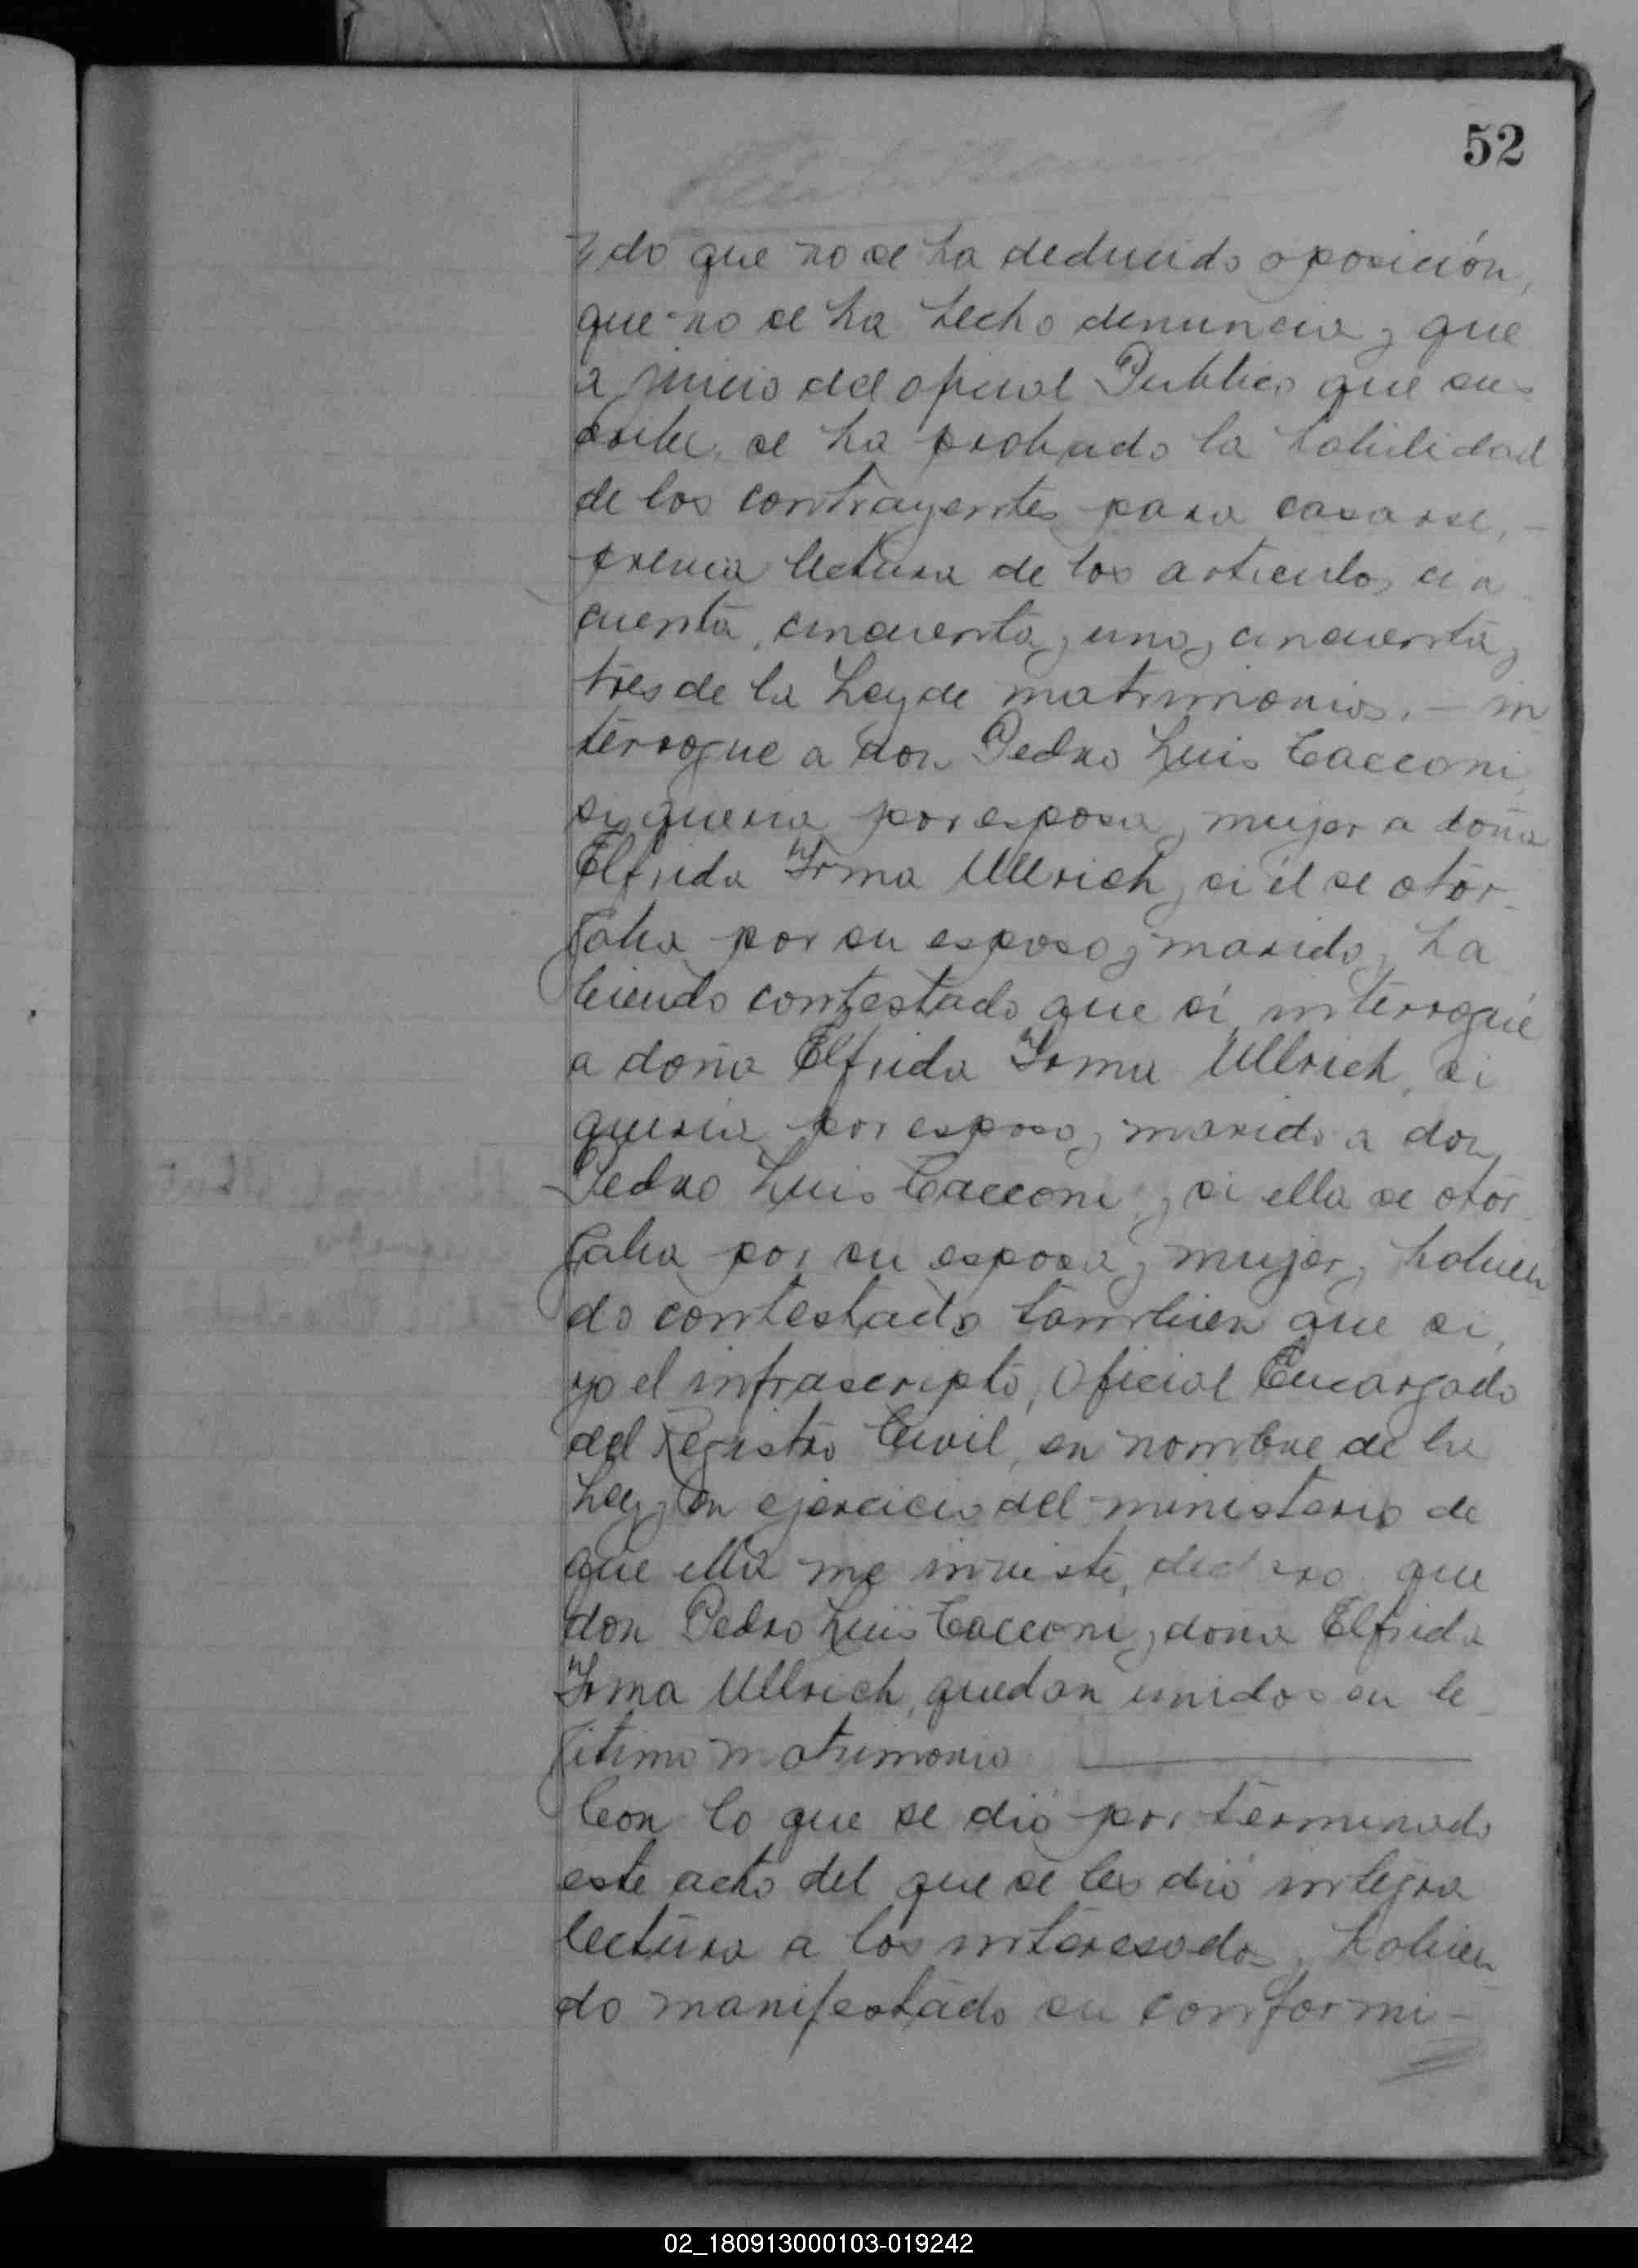 52
do que no se ha deducido oposición,
que no se ha hecho denuncia y que
a juicio del oficial Publico que sus-
cribe, se ha probado la habilidad
de los contrayentes para casarse, -
previa lectura de los articulos cin
cuenta, cincuenta y uno y cincuenta y
tres de la Ley de matrimonios. - in
terrogue a don Pedro Luis Cacconi,
si queria por esposa y mujer a doña
Elfrida Irma Ullrich y si él se otor-
gaba por su esposo y marido y ha
biendo contestado que sí, interrogué
a doña Elfrida Irma Ullrich, si
queria por esposo y marido a don
Pedro Luis Cacconi y si ella se otor
gaba por su esposa y mujer y habien
do contestado tambien que si,
yo el infrascripto, Oficial Encargado
del Registro Civil, en nombre de la
Ley y en ejercicio del ministerio de
que ella me inviste, declaro que
don Pedro Luis Cacconi y doña Elfrida
Irma Ullrich, quedan unidos en le-
gitimo matrimonio
Con lo que se dió por terminado
este acto del que se les dió integra
lectura a los interesados, habien
do manifestado su conformi-
02_180913000103-019242